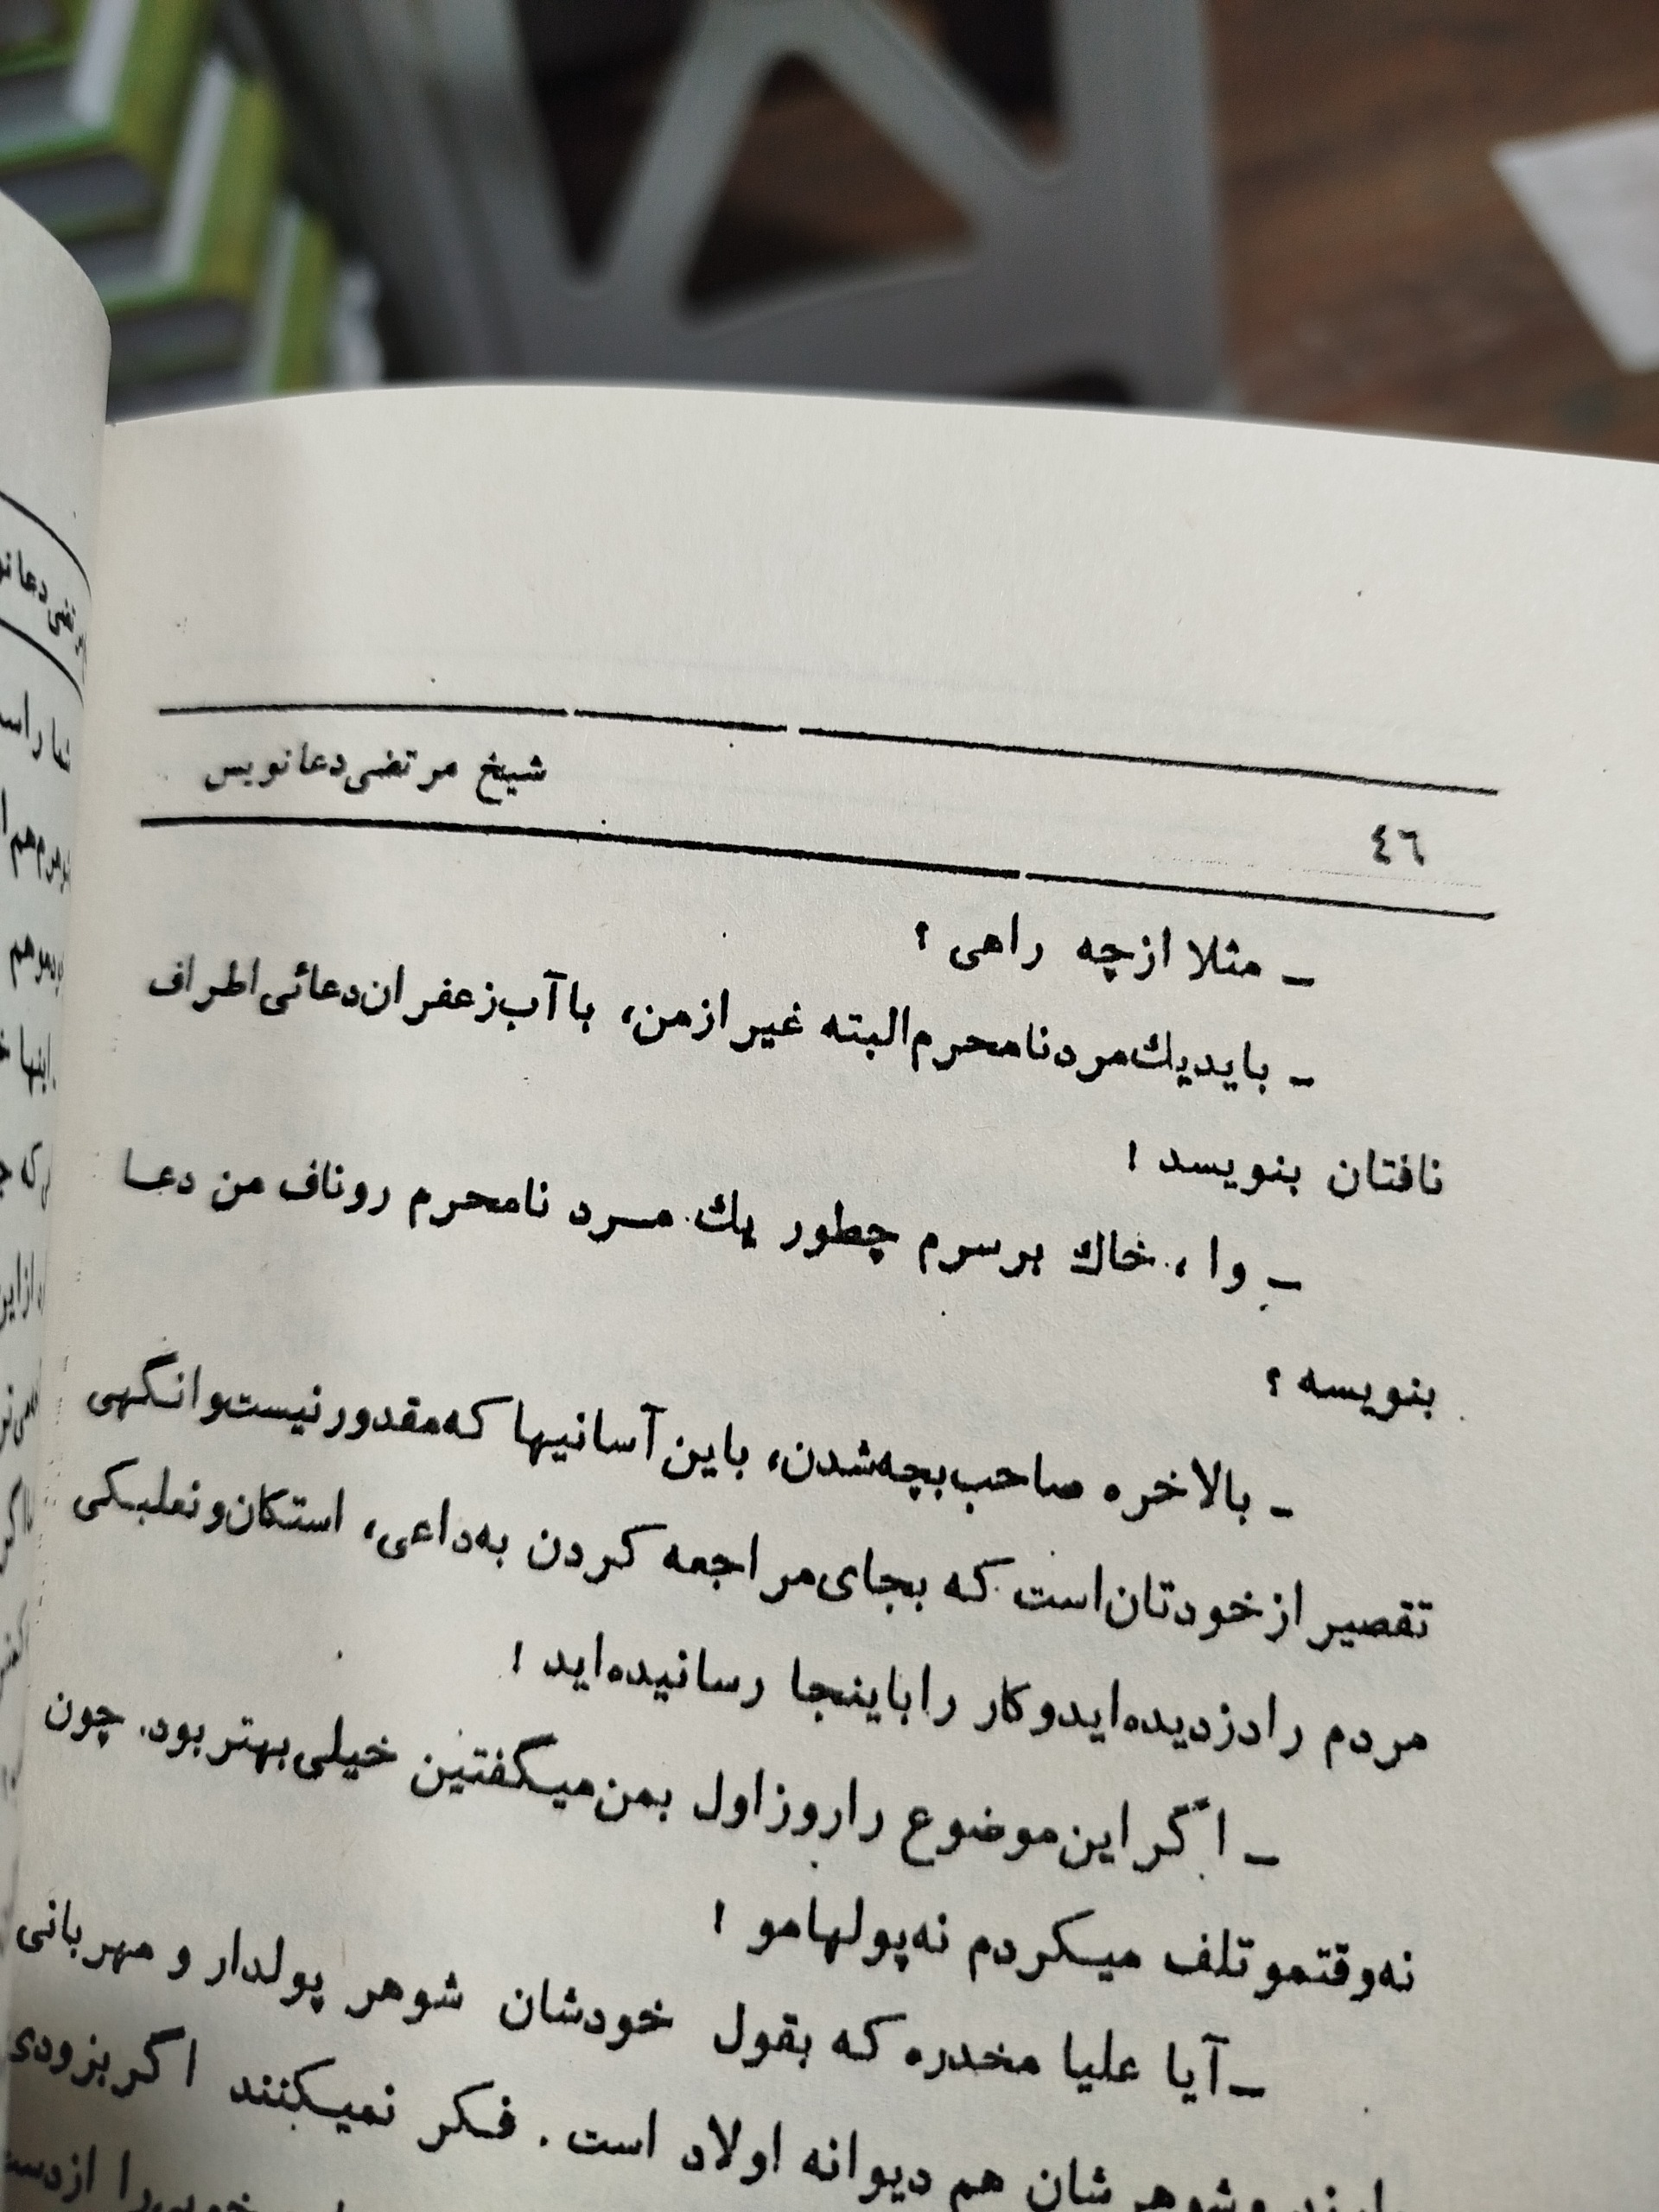 شیخ مرتضی دعانویس
٤٦
ـ مثلا از چه راهی ؟
ـ باید یك مرد نامحرم البته غیر از من، با آب زعفران دعائی اطراف
نافتان بنویسد !
ـ وا ، خاك برسرم چطور یك مـرد نامحرم روناف من دعـا
بنویسه ؟
ـ بالاخره صاحب بچه شدن، باین آسانیها که مقدور نیست وانگهی
تقصیر از خودتان است که بجای مراجعه کردن به داعی، استکان و نعلبکی
مردم را دزدیده اید و کار را باینجا رسانیده اید !
ـ اگر این موضوع را روز اول بمن میگفتین خیلی بهتر بود. چون
نه وقتمو تلف میکردم نه پولهامو !
ـ آیا علیا مخدره که بقول خودشان شوهر پولدار و مهربانی
دارند و شوهرشان هم دیوانه اولاد است . فکر نمیکنند اگر بزودی
را ازدست